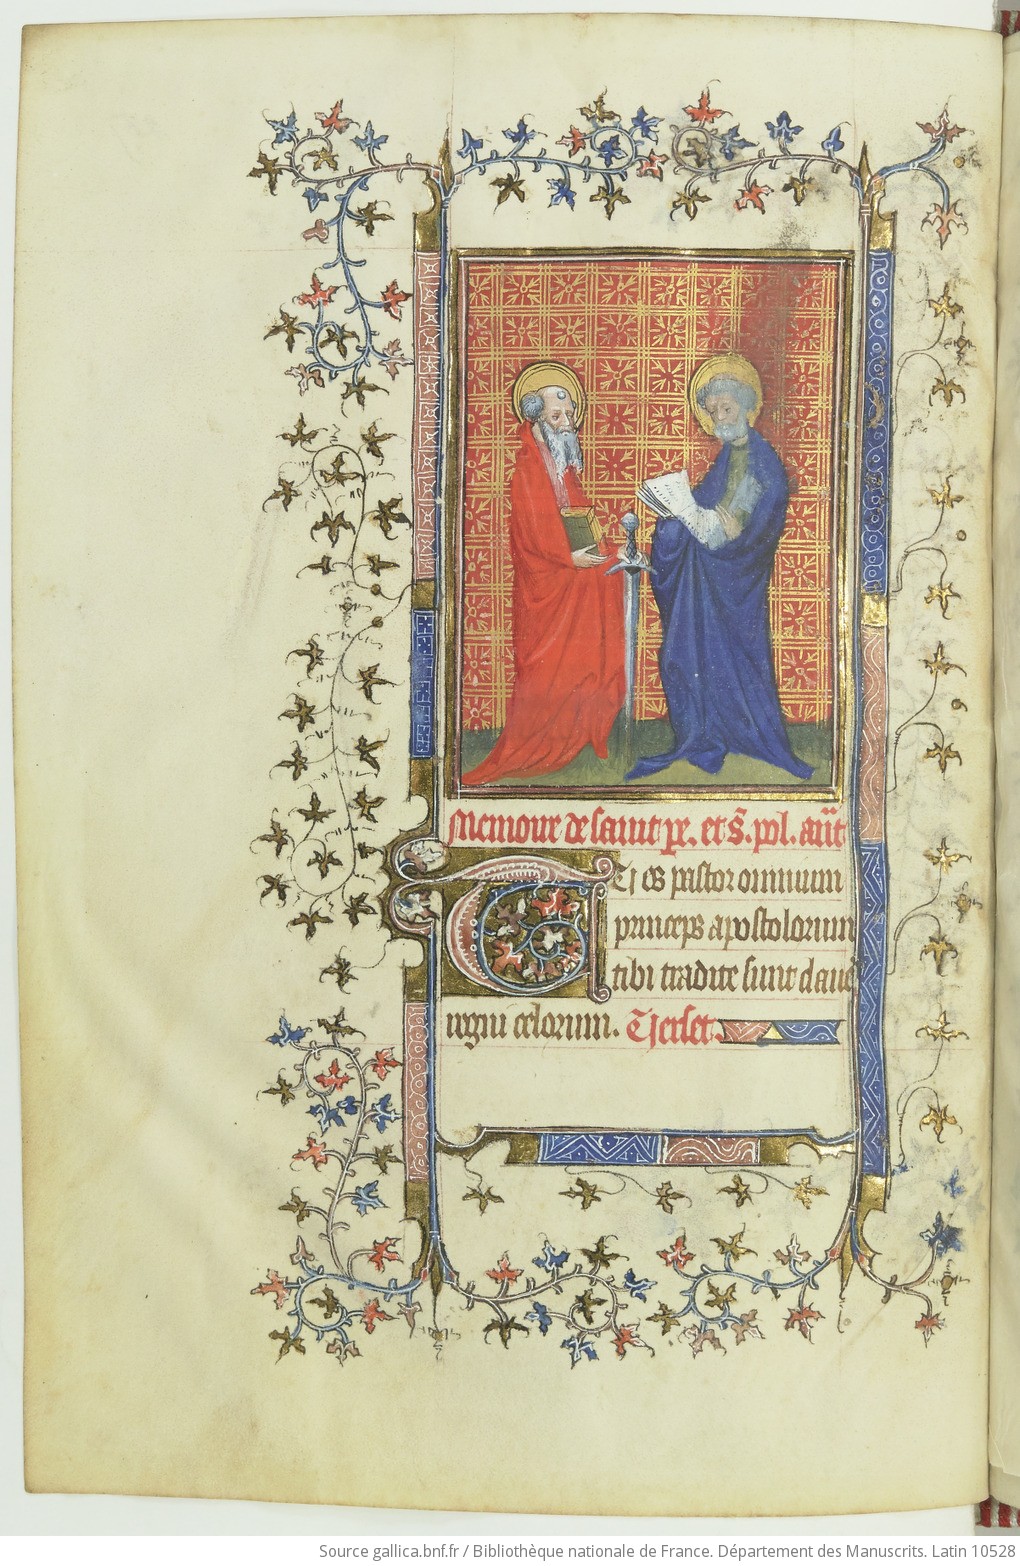 Memoire de saint pe. et s. pol. ant
Tu es pastor omnium
princeps apostolorum
tibi tradite sunt claues
regni celorum. Verset.
Source gallica.bnf.fr / Bibliothèque nationale de France. Département des Manuscrits. Latin 10528